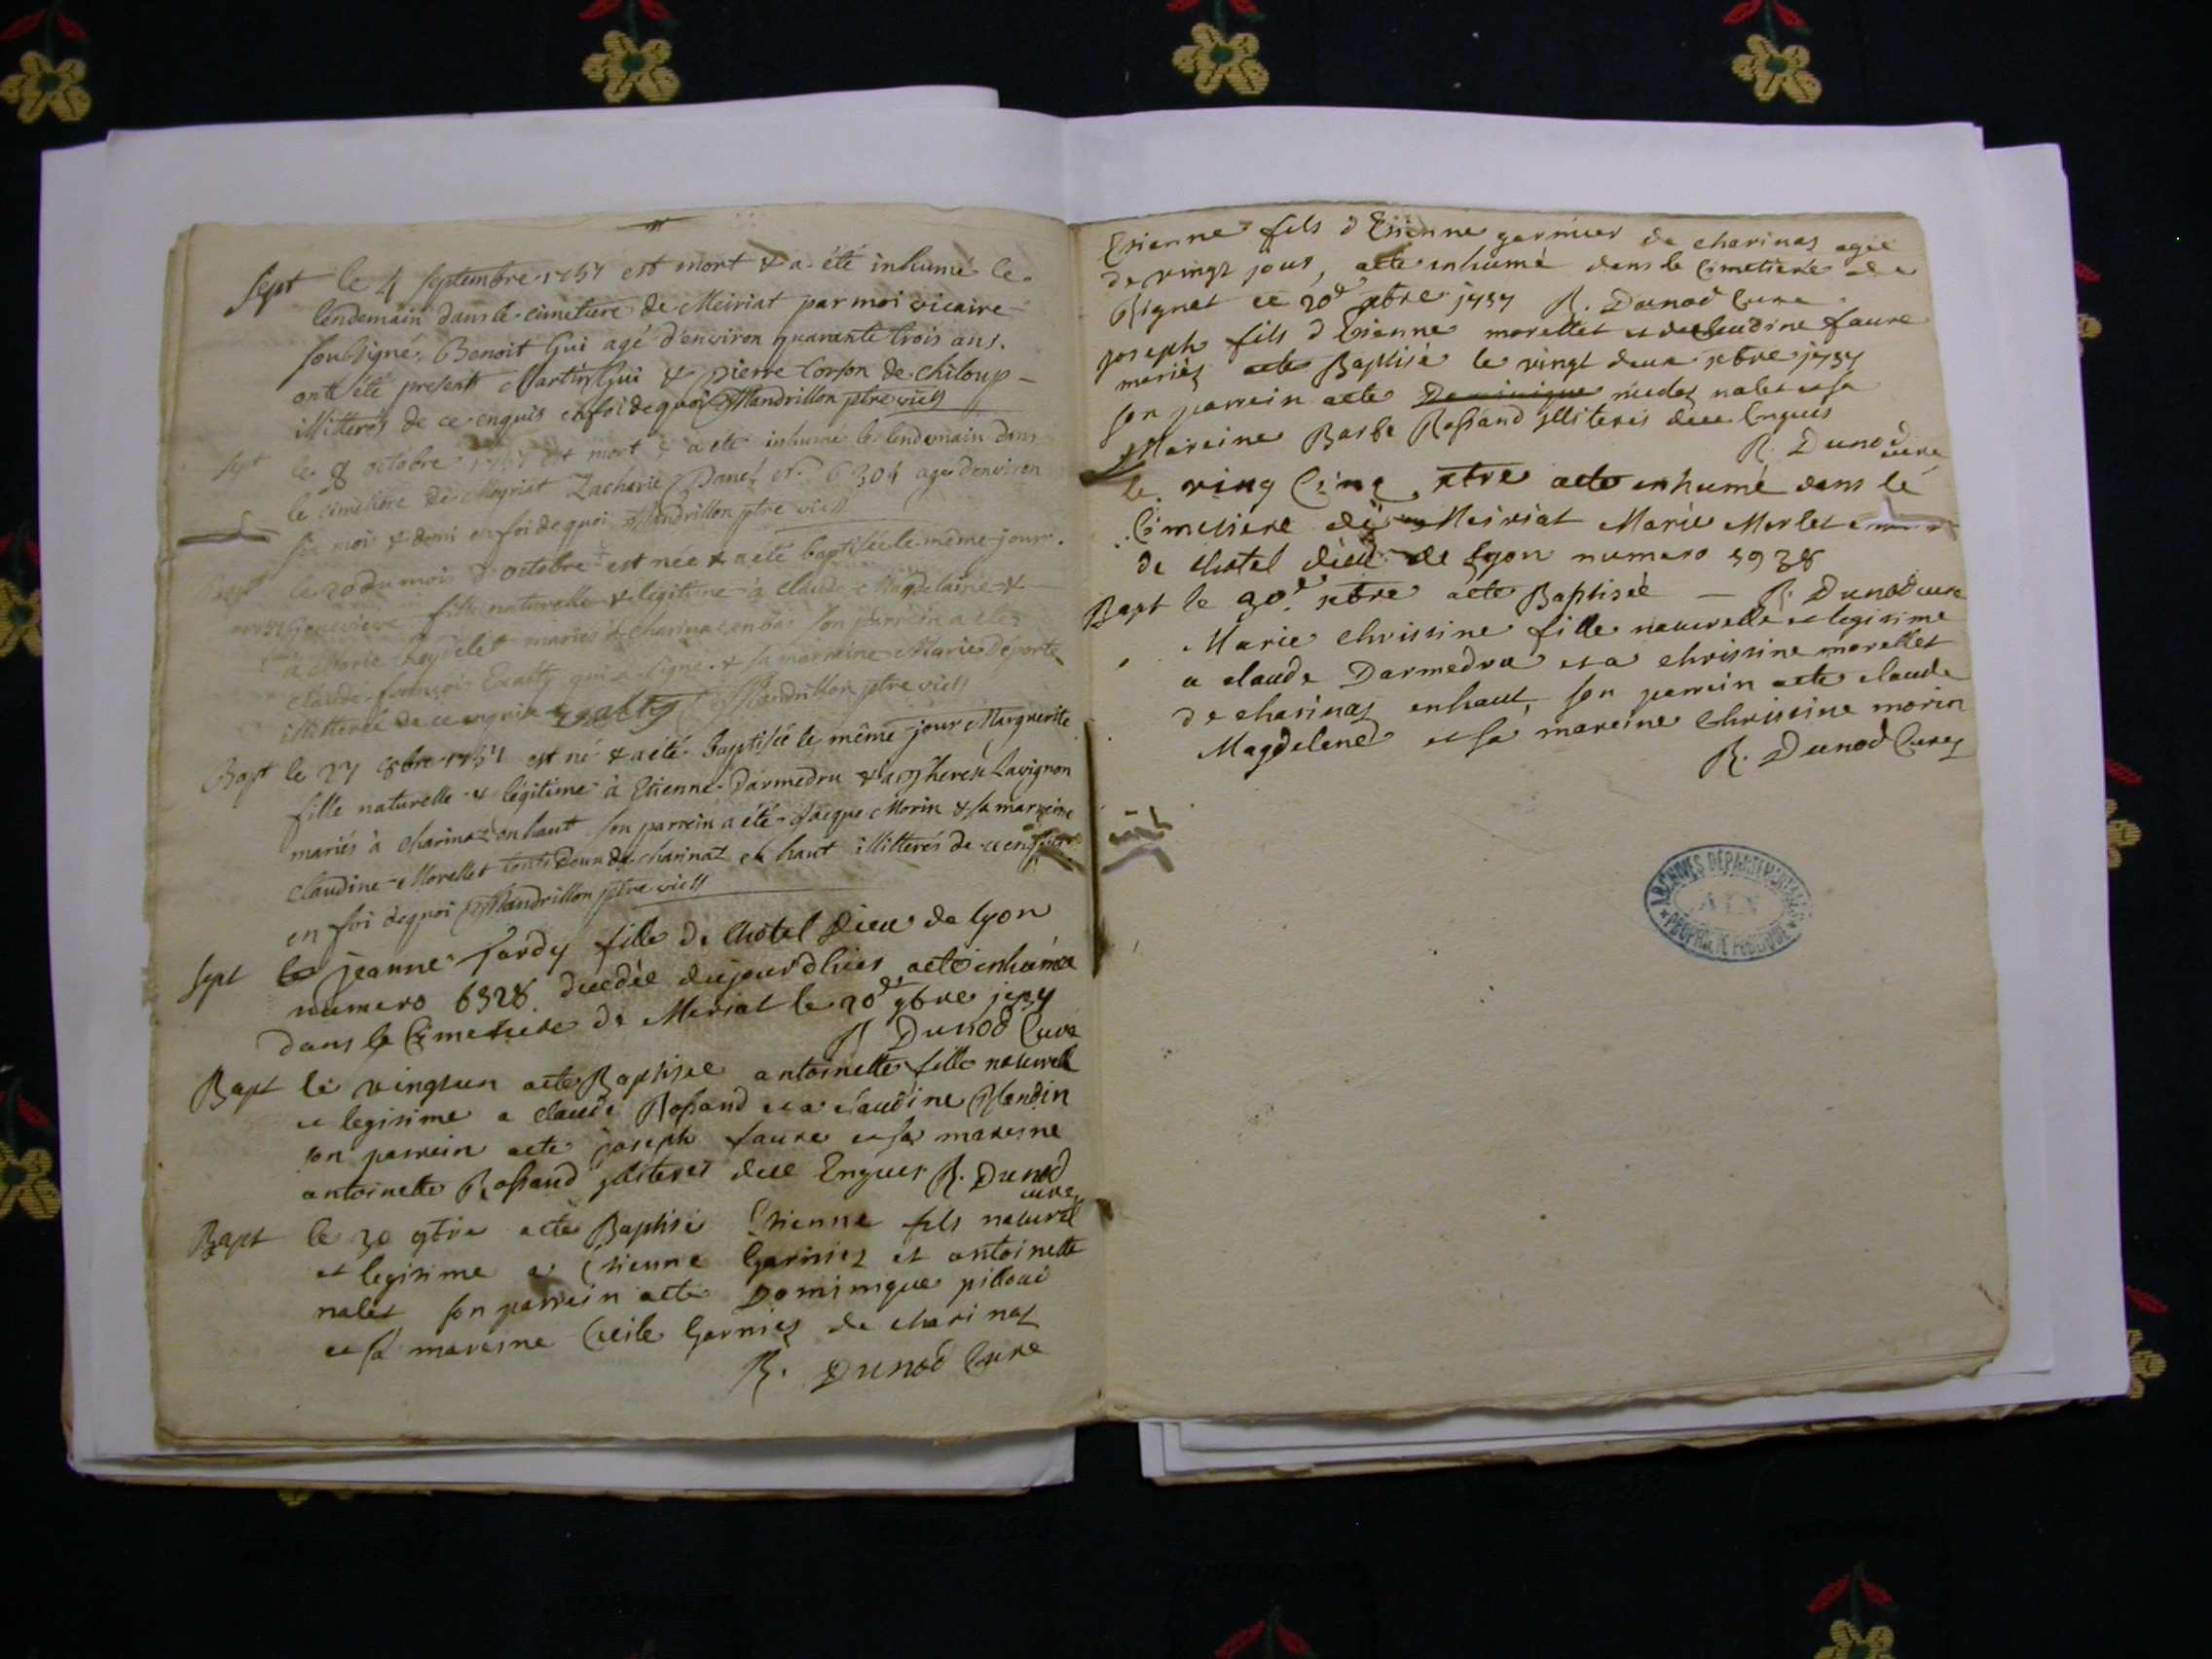 Sept le 4 septembre 1757 est mort & a été inhumé le
lendemain dans le cimetiere de Meiriat par moi vicaire
soubsigné, Benoit Gui agé d'environ quarante trois ans.
ont été presents Martin Gui & pierre Corson de chiloup
illitterés de ce enquis en foi de quoi Mandrillon ptre vic
Sept le 8 octobre 1757 est mort & a été inhumé le lendemain dans
le cimetiere de Meyriat Zacharie Danel n° 6304 agé d'environ
six mois & demi en foi de quoi Mandrillon ptre vic
Bapt le 20 du mois d'octobre est née & a été baptisée le même jour
1757 Genevieve fille naturelle & légitime à claude Magdelaine &
à Marie Reydelet mariés à charinaz en bas son parrein a été
claude françois Exalty qui a signé & sa marreine Marie Déporte
illitterée de ce enquise Exalty Mandrillon ptre vic
Bapt le 27 8bre 1757 est né & a été baptisée le même jour Marguerite
fille naturelle & légitime à Etienne Darmedru & à Therese Lavignon
mariés à charinaz en haut son parrein a été Jacque Morin & sa marreine
claudine Morellet tous deux de charinaz en haut illitterés de ce enquis
en foi de quoi Mandrillon ptre vic
Sept jeanne Tardy fille de lhotel Dieu de lyon
numero 6328 decedée dujourdhier aeté inhumée
dans le Cimetiere de Meriat le 20 9bre 1757
R Dunod Curé
Bapt le vingtun aeté Baptisee antoinette fille naturell
et legitime a claude Rossand et a claudine Blandin
son parrein aeté joseph faure et sa mareine
antoinette Rossand jlliterés dece Enquis R. Dunod
curé
Bapt le 30 9bre aeté Baptisé Etienne fils naturel
et legitime a Etienne Garnier et antoinette
nalet son parrein aeté Dominique pilloud
et sa mareine Cecile Garnier de charinaz
R. Dunod Curé
Etienne fils d'Etienne garnier de charinas agée
de vingt jour, aeté inhumé dans le Cimetiere de
Rignat ce 20e xbre 1757 R. Dunod Curé
joseph fils d'Etienne morellet et de claudine faure
mariés aeté Baptisé le vingt deux xbre 1757
son parrein aeté Dominique nalet et sa
Mareine Barbe Rossand jlliterés dece Enquis
R. Dunod
curé
le ving Cinq xbre aeté inhumé dans le
Cimetiere de Meiriat Marie Merlet
de lhotel dieu de lyon numero 5938
Bapt le 30e xbre aeté Baptisée — R. Dunod curé
Marie Christine fille naturelle et legitime
a claude Darmedru et a christine morellet
de charinaz enhaut, son parrein aeté claude
Magdelene et sa mareine Christine morin
R. Dunod Curé
ARCHIVES DÉPARTEMENTALES
AIN
PROPRIÉTÉ PUBLIQUE